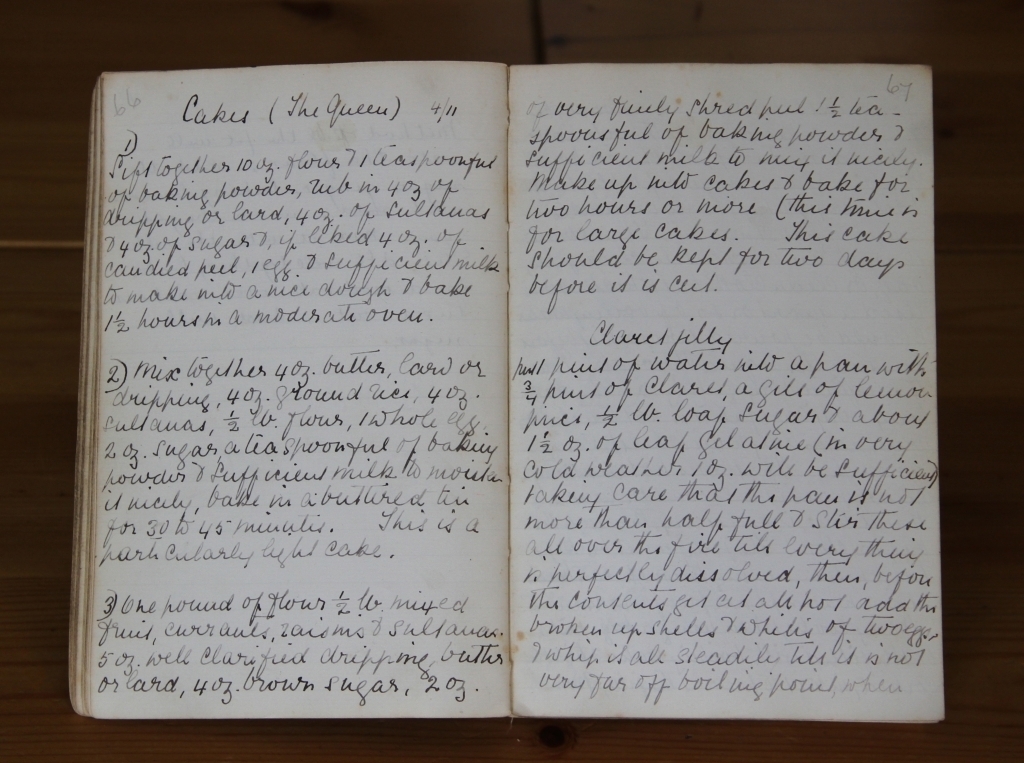 66
Cakes (The Queen) 4/11
1)
Sift together 10 oz. flour & 1 teaspoonful
of baking powder, rub in 4 oz of
dripping or lard, 4 oz. of sultanas
& 4 oz. of sugar &, if liked 4 oz. of
candied peel, 1 egg & sufficient milk
to make into a nice dough & bake
1½ hours in a moderate oven.
2) Mix together 4 oz. butter, lard or
dripping, 4 oz. ground rice, 4 oz.
sultanas, ½ lb. flour, 1 whole egg
2 oz. sugar, a teaspoonful of baking
powder & sufficient milk to moisten
it nicely, bake in a buttered tin
for 30 to 45 minutes. This is a
particularly light cake.
3) One pound of flour ½ lb. mixed
fruit, currants, raisins & sultanas.
5 oz. well clarified dripping, butter
or lard, 4 oz. brown sugar, 2 oz.
67
of very finely shred peel 1½ tea-
spoonsful of baking powder &
sufficient milk to mix it nicely.
Make up into cakes & bake for
two hours or more (this time is
for large cakes. This cake
should be kept for two days
before it is cut.
Claret jelly
put 1 pint of water into a pan with
¾ pint of claret, a gill of lemon
juice, ½ lb. loaf sugar & about
1½ oz. of leaf gelatine (in very
cold weather 1 oz. will be sufficient)
taking care that the pan is not
more than half full & stir these
all over the fire till everything
is perfectly dissolved, then, before
the contents get at all hot add the
broken up shells & whites of two eggs,
& whip it all steadily till it is not
very far off boiling point, when